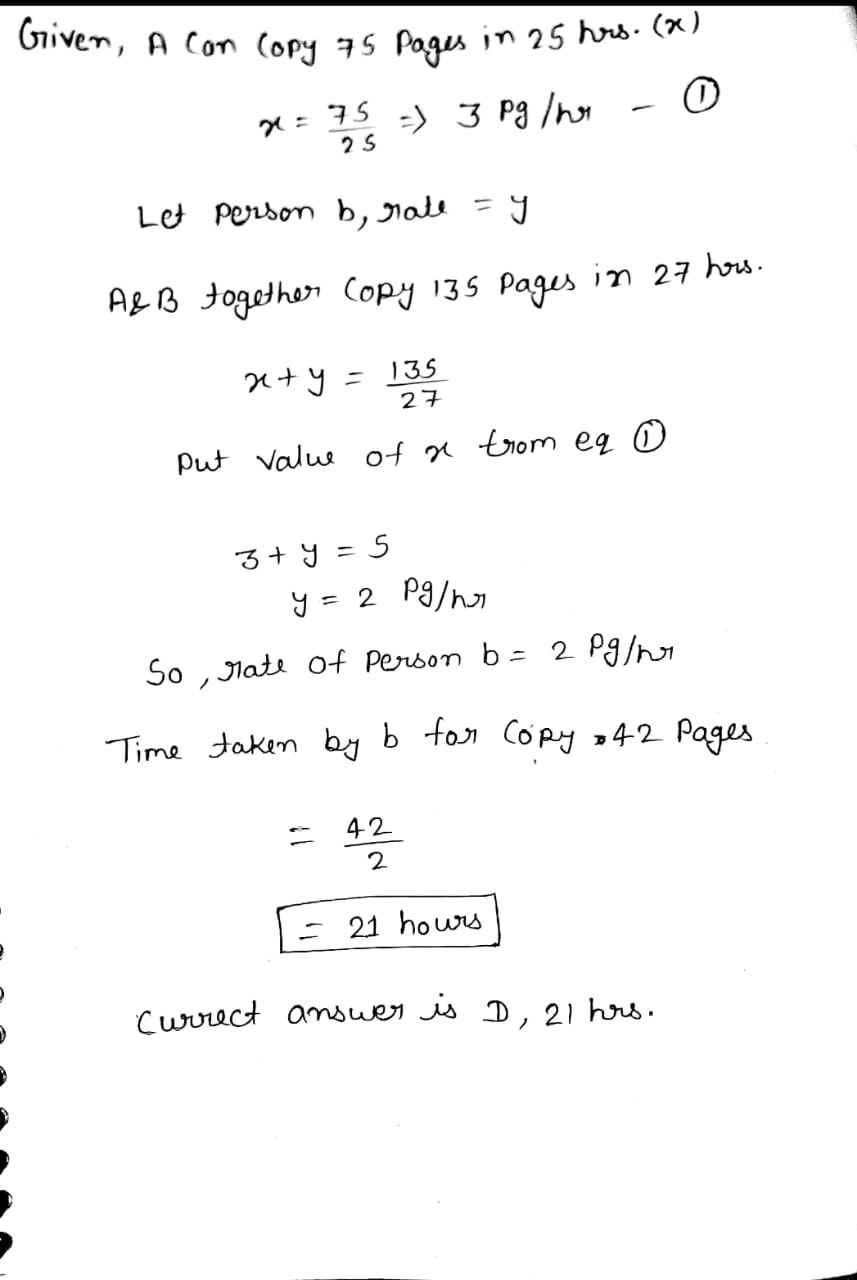 Given, A Can Copy 75 Pages in 25 hrs. (x)
x = 75/25 => 3 Pg/hr - ①
Let person b, rate = y
A&B together Copy 135 Pages in 27 hrs.
x + y = 135/27
Put Value of x from eq ①
3 + y = 5
y = 2 Pg/hr
So, rate of Person b = 2 Pg/hr
Time taken by b for Copy 42 Pages
= 42/2
= 21 hours
Currect answer is D, 21 hrs.